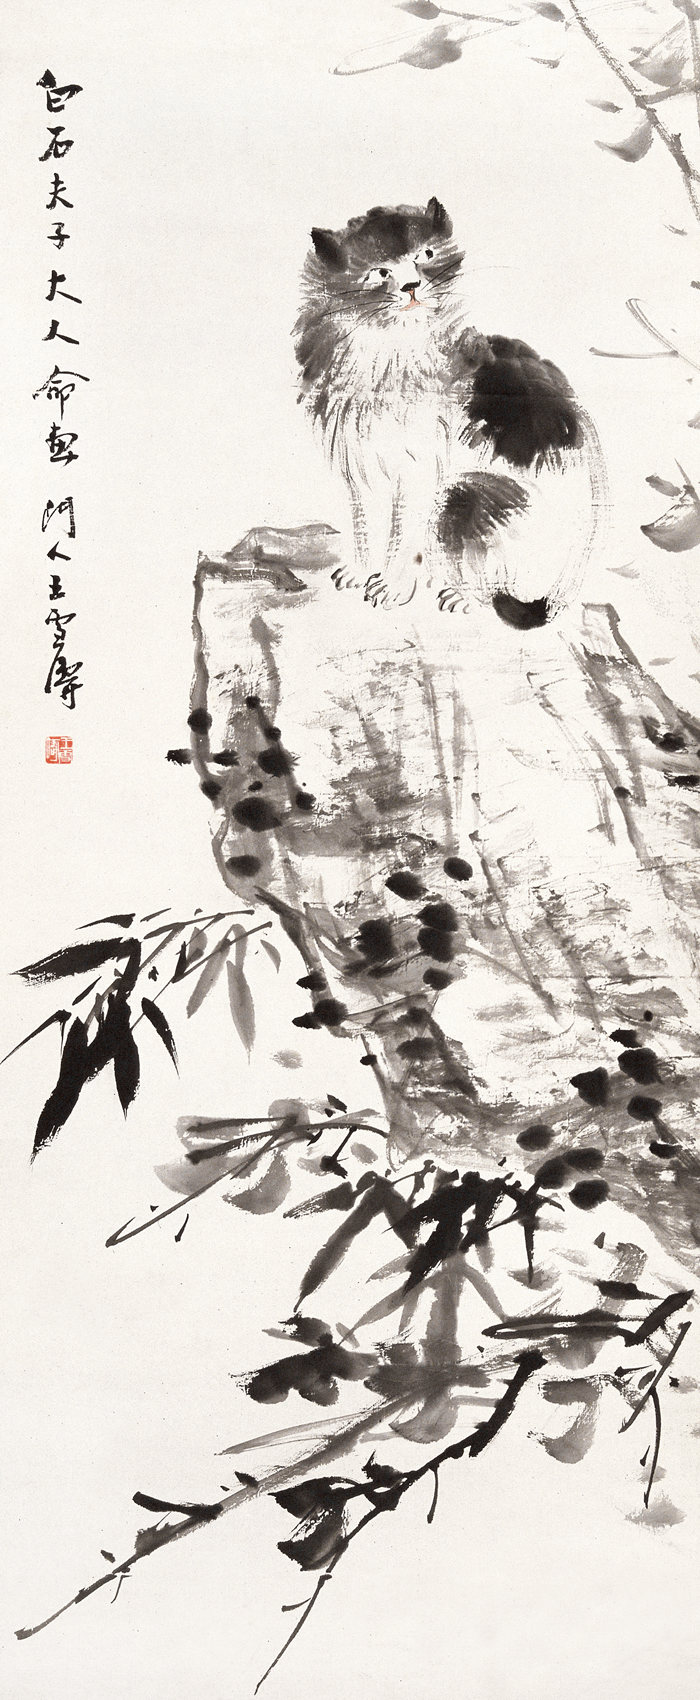 白石夫子大人命画 门人王雪涛